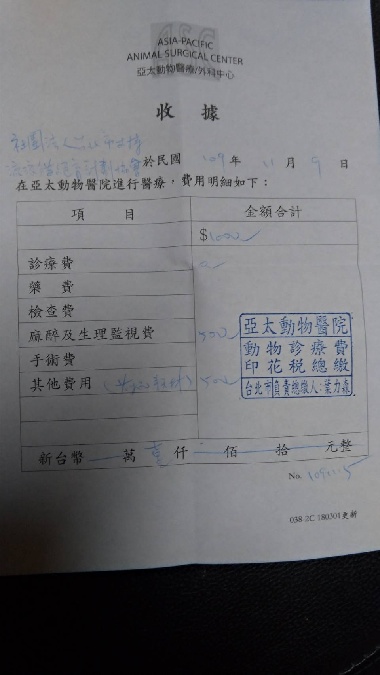 ASIA-PACIFIC
ANIMAL SURGICAL CENTER
亞太動物醫療/外科中心
收據
社團法人台北市支持
流浪貓絕育計劃協會 於民國 109 年 11 月 9 日
在亞太動物醫院進行醫療，費用明細如下：
項 目 金額合計
$1000
診療費
藥 費
檢查費
麻醉及生理監視費 500
手術費
其他費用 500
亞太動物醫院
動物診療費
印花税總繳
台北市負責總繳人:葉力森
新台幣 萬 壹 仟 佰 拾 元整
No.
038-2C 180301更新